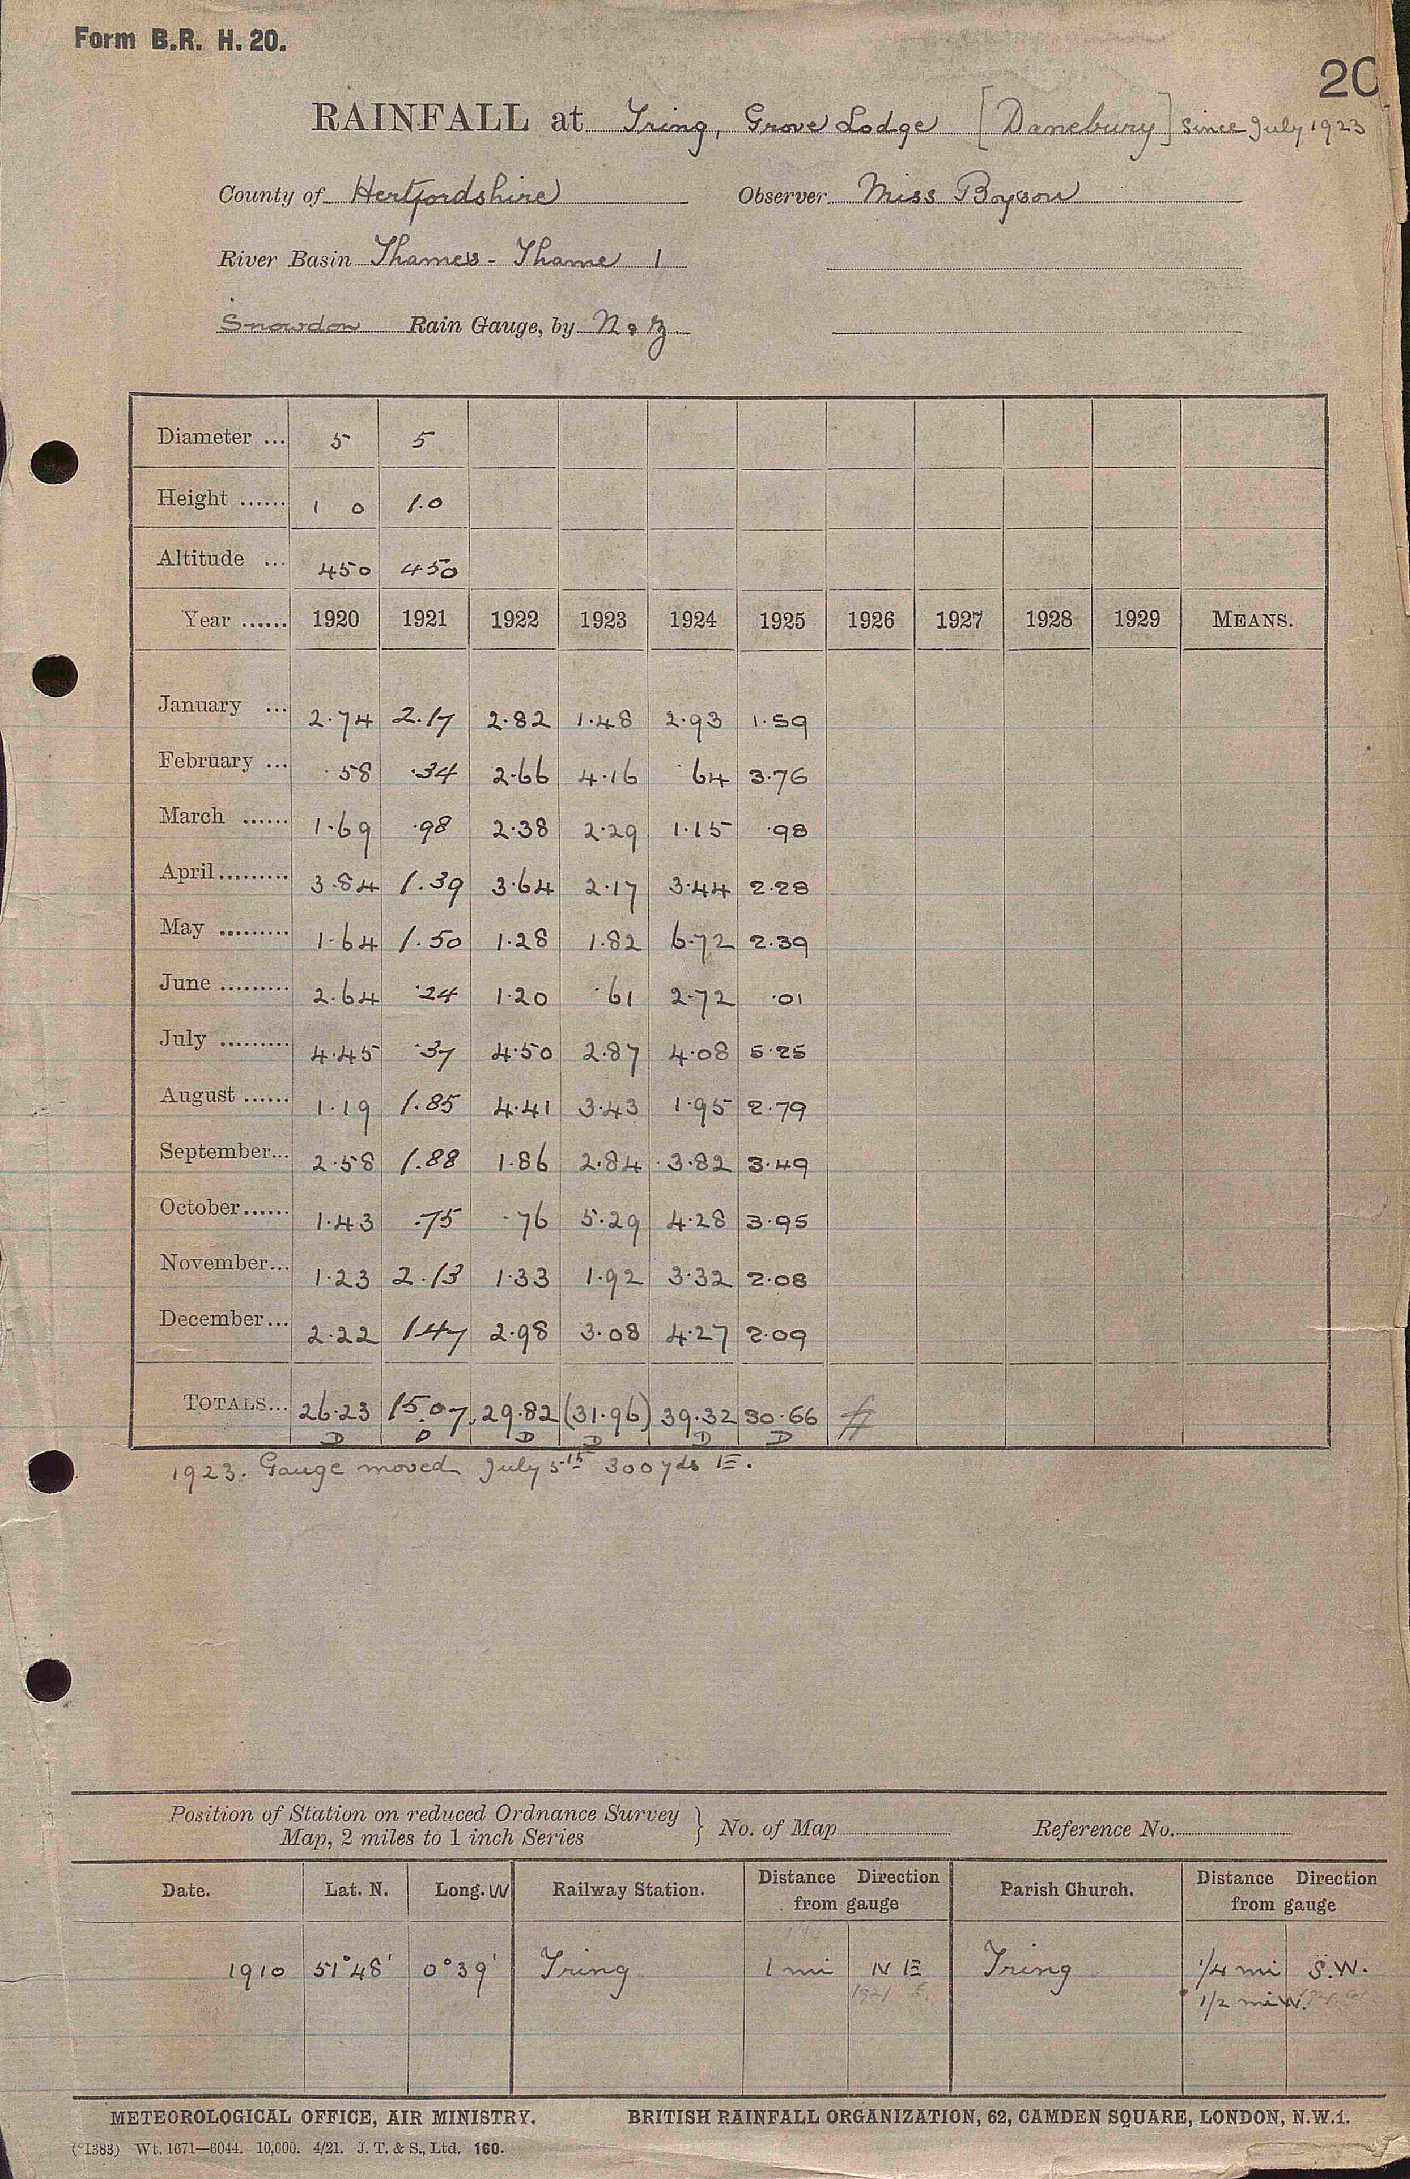 Form B.R. H. 20.
20
RAINFALL at Tring, Grove Lodge [Danebury] since July 1923
County of Hertfordshire Observer Miss Boyson
River Basin Thames - Thame 1
Snowdon Rain Gauge, by N & Z
Diameter ... 5 5
Height ...... 1 0 1.0
Altitude ... 450 450
Year ...... 1920 1921 1922 1923 1924 1925 1926 1927 1928 1929 MEANS.
January ... 2.74 2.17 2.82 1.48 2.93 1.59
February ... .58 .34 2.66 4.16 .64 3.76
March ...... 1.69 .98 2.38 2.29 1.15 .98
April ......... 3.84 1.39 3.64 2.17 3.44 2.28
May ......... 1.64 1.50 1.28 1.82 6.72 2.39
June ......... 2.64 .24 1.20 .61 2.72 .01
July ......... 4.45 .37 4.50 2.87 4.08 5.25
August ...... 1.19 1.85 4.41 3.43 1.95 2.79
September... 2.58 1.88 1.86 2.84 3.82 3.49
October...... 1.43 .75 .76 5.29 4.28 3.95
November... 1.23 2.13 1.33 1.92 3.32 2.08
December... 2.22 1.47 2.98 3.08 4.27 2.09
TOTALS... 26.23 15.07 29.82 (31.96) 39.32 30.66
D D D D D D
1923. Gauge moved July 5th 300 yds E.
Position of Station on reduced Ordnance Survey
Map, 2 miles to 1 inch Series } No. of Map Reference No.
Date. Lat. N. Long. W Railway Station. Distance Direction from gauge Parish Church. Distance Direction from gauge
1910 51°48' 0°39' Tring 1 mi NE Tring 1/4 mi S.W.
1921 1/2 mi W.
METEOROLOGICAL OFFICE, AIR MINISTRY. BRITISH RAINFALL ORGANIZATION, 62, CAMDEN SQUARE, LONDON, N.W.1.
(*1383) Wt. 1671—6044. 10,000. 4/21. J. T. & S., Ltd. 160.